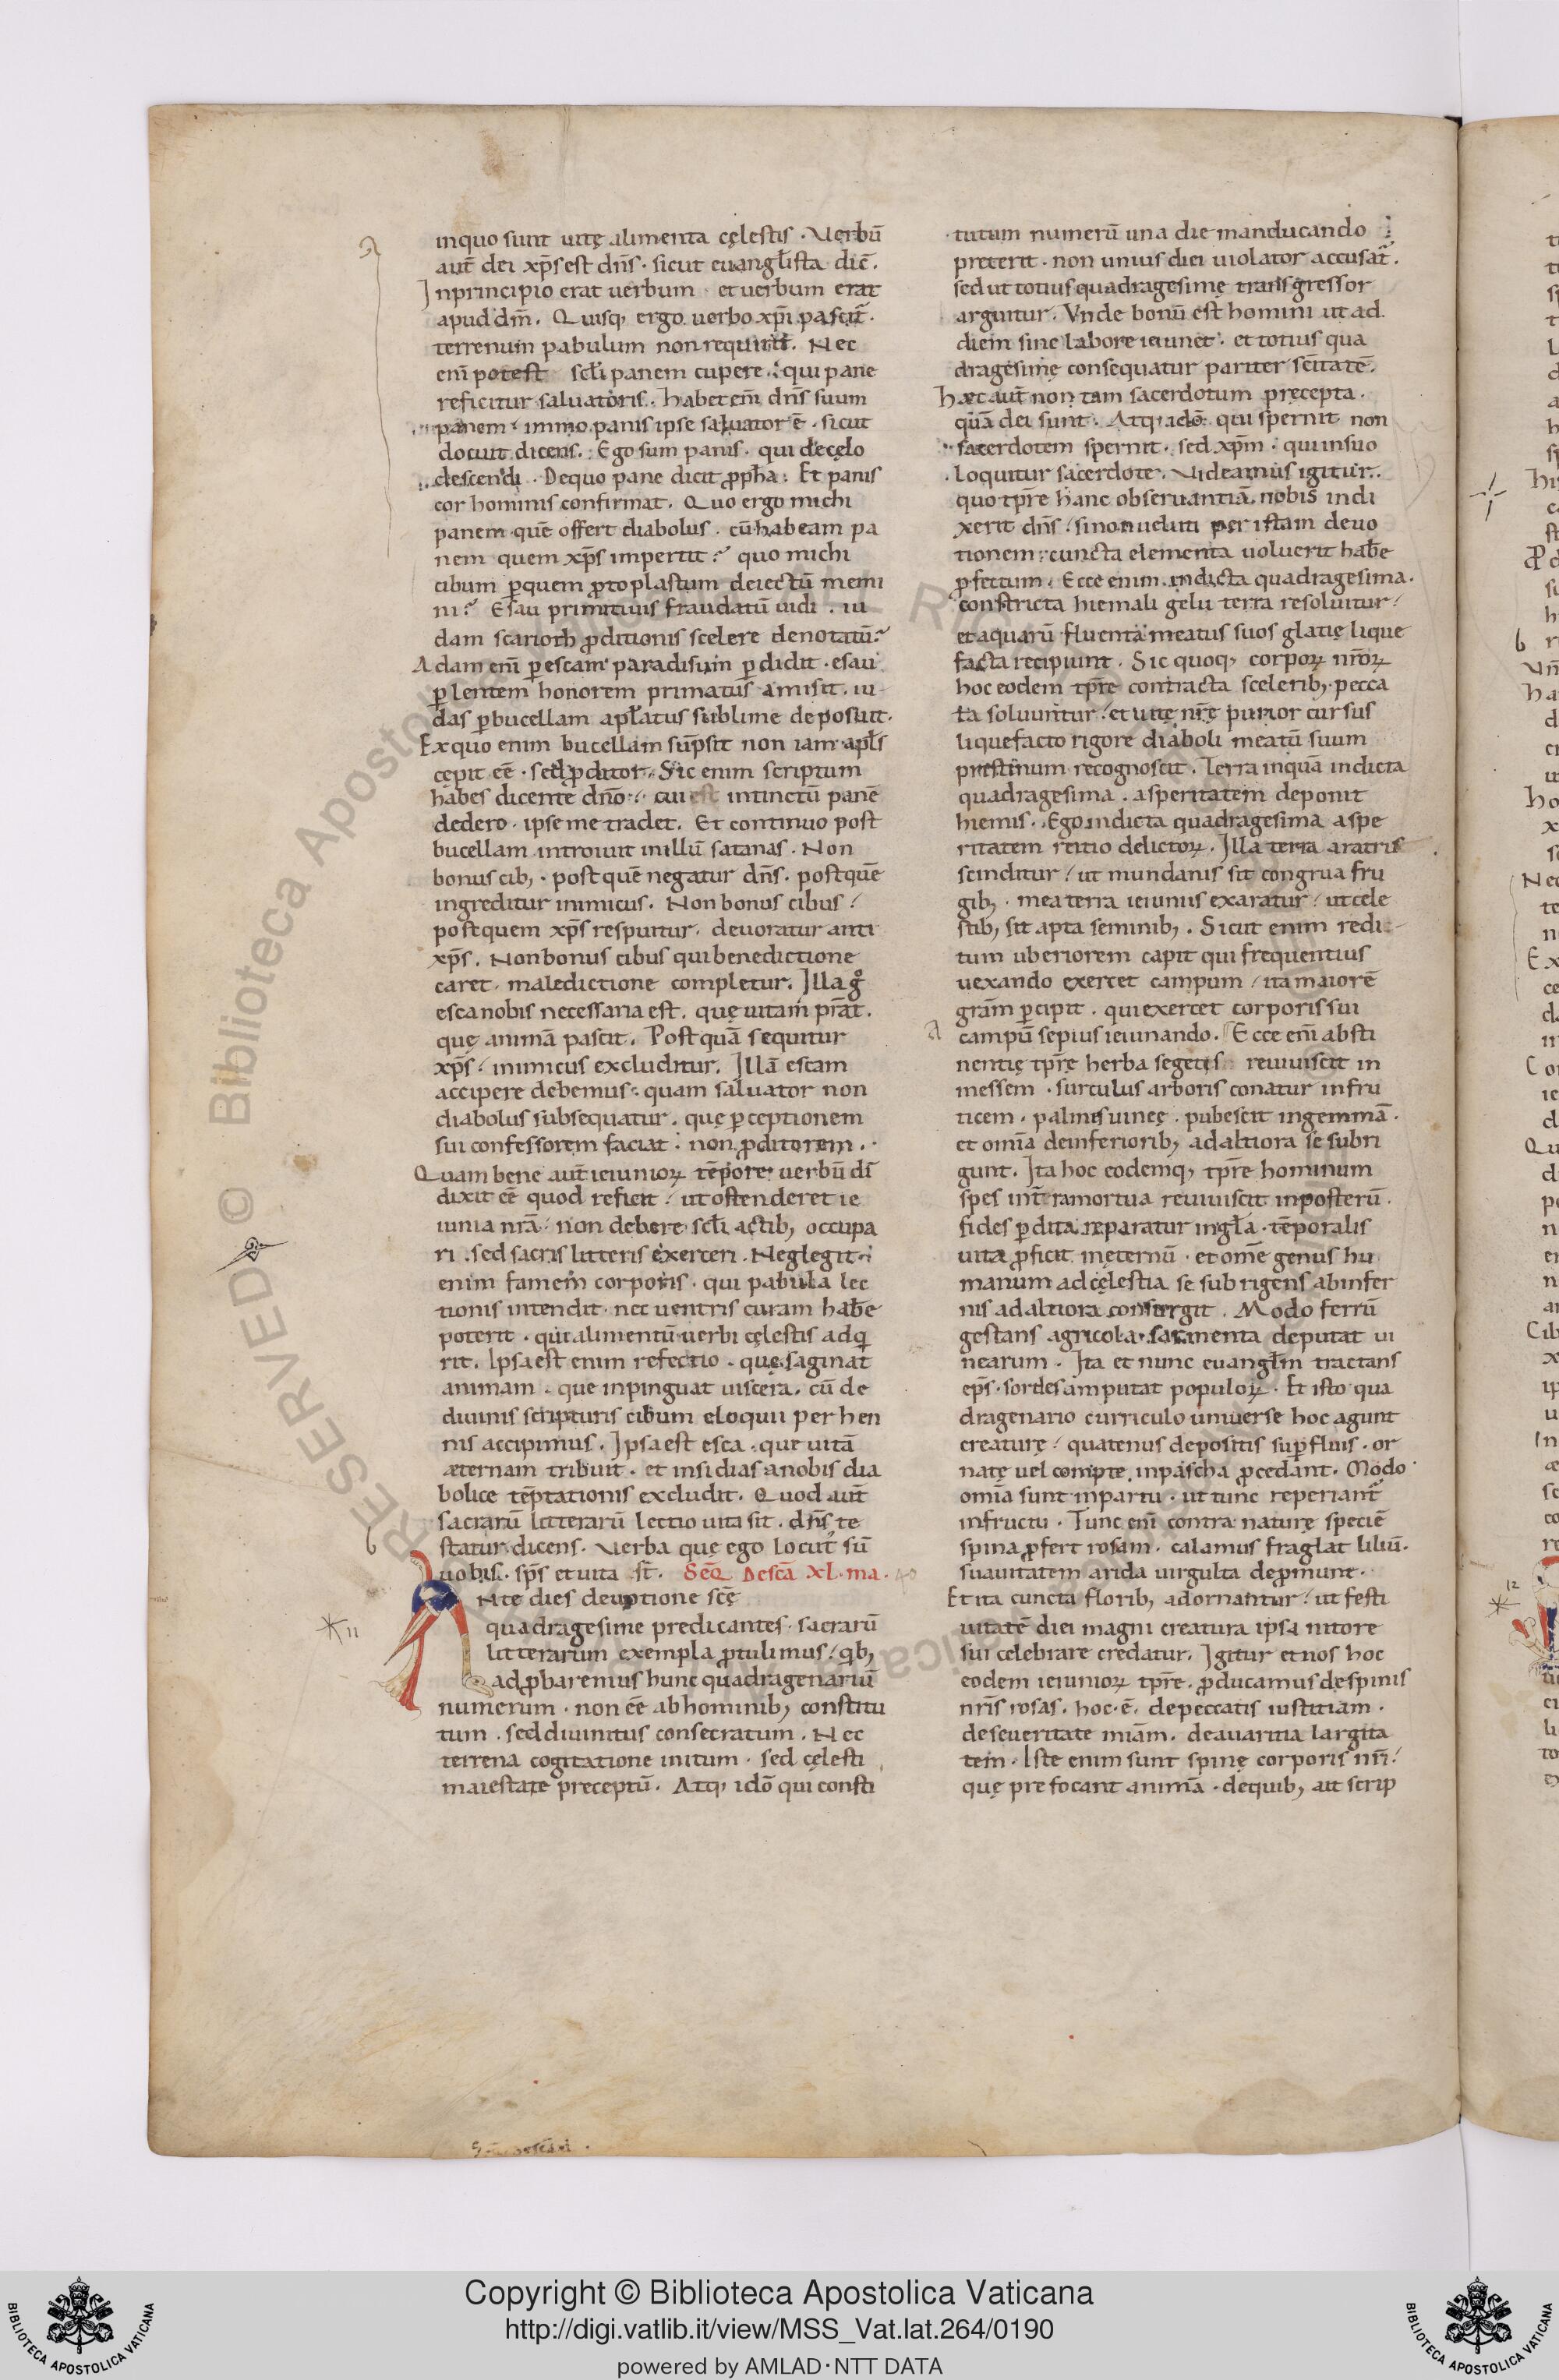 inquo sunt uitę alimenta cęlestis · Verbū
aut̄ dei xp̄s est dn̄s · sicut euangl̄ista dic̄.
Inprincipio erat uerbum · et uerbum erat
apud dm̄. Quisq; ergo uerbo xp̄i pascit᷑.
terrenum pabulum non requirit. Nec
eni᷑ potest scl̄i panem cupere · qui pane
reficitur saluatoris. Habet em̄ dn̄s suum
panem · immo panis ipse saluator ē · sicut
docuit dicens. Ego sum panis · qui decęlo
descendi · Dequo pane dicit ꝓph̄a. Et panis
cor hominis confirmat. Quo ergo michi
panem quē offert diabolus · cū habeam pa
nem quem xp̄s impertit? quo michi
cibum ꝑquem ꝓtoplastum deiectū memi
ni? Esau primitiuis fraudatū uidi · iu
dam scarioth ꝓditionis scelere denotatū?
Adam eni᷑ ꝑescam paradisum ꝑdidit · esau
ꝑlentem honorem primatus amisit · iu
das ꝑbucellam apl̄atus sublime deposuit.
Exquo enim bucellam sūpsit non iam apl̄s
cępit eē̄ · sed ꝓditor · Sic enim scriptum
habes dicente dn̄o · cui intinctū panē
dedero · ipse me tradet. Et continuo post
bucellam introiuit inillū satanas · Non
bonus cib; · post quē negatur dn̄s · postquē
ingreditur inimicus. Non bonus cibus /
postquem xp̄s respuitur · deuoratur anti
xp̄s. Nonbonus cibus qui benedictione
caret · maledictione completur. Illa gͦ
esca nobis necessaria est · quę uitam p̄ratāt.
quę animā pascit. Post quā sequitur
xp̄s / inimicus excluditur. Illā escam
accipere debemus · quam saluator non
diabolus subsequatur · quę ꝑceptionem
sui confessorem faciat · non ꝓditorem.
Quam bene aut̄ ieiunioꝝ tēpore uerbū dī
dixit eē̄ quod reficit / ut ostenderet ie
iunia nr̄a / non debere scl̄i actib; occupa
ri · sed sacris litteris exerceri. Neglegit
enim famem corporis · qui pabula lec
tionis intendit · nec uentris curam hab̄e
poterit · qui alimentū uerbi cęlestis adqͥ
rit. Ipsa est enim refectio · quę saginat
animam · que inpinguat uiscera · cū de
diuinis scripturis cibum eloquii perhen
nis accipimus. Ipsa est esca · que uitā
æternam tribuit · et insidias anobis dia
bolice tēptationis excludit. Quod aut̄
sacrarū litterarū lectio uita sit · dn̄s te
statur dicens. Verba quę ego locut᷑ sū
uobis · sp̄s et uita st̄. Sēq̄ Descā XL·ma·
Nte dies deuotione scę̄
quadragesime predicantes · sacrarū
litterarum exempla ꝓtulimus / qͥb;
ad ꝓbaremus hunc quadragenariū
numerum · non eē̄ ab hominib; constitu
tum · sed diuinitus consecratum. Nec
terrena cogitatione initum · sed cęlesti
maiestate preceptū. Atq; idō qui consti
tutum numerū una die manducando
preterit · non unius diei uiolator accusat᷑.
sed ut totius quadragesimę transgressor
arguitur. Vnde bonū est homini ut ad
diem sine labore ieiunet · et totius qua
dragesimę consequatur pariter sc̄itatē.
Hæc aut̄ non tam sacerdotum pręcepta ·
quā dei sunt. Atq; idō qui spernit non
sacerdotem spernit · sed xp̄m · qui insuo
loquitur sacerdote. Videamus igitur
quo tp̄re hanc obseruantiā nobis indi
xerit dn̄s / sino ueluti per istam deuo
tionem cuncta elementa uoluerit hab̄e
ꝓfectum. Ecce enim indicta quadragesima ·
constricta hiemali gelu terra resoluitur /
et aquarū fluenta meatus suos glatię lique
facta recipiunt. Sic quoq; corpoꝝ nr̄oꝝ
hoc eodem tp̄re contracta scelerib; pecca
ta soluuntur / et uitę nr̄ę purior cursus
liquefacto rigore diaboli meatū suum
prestinum recognoscit. Terra inquā indicta
quadragesima · asperitatem deponit
hiemis. Ego indicta quadragesima aspe
ritatem reitio delictoꝝ. Illa terra aratris
scinditur / ut mundanis sit congrua fru
gib; · mea terra ieiuniis exaratur / ut cęle
stib; sit apta seminib;. Sicut enim redi
tum uberiorem capit qui frequentius
uexando exercet campum / ita maiorē
grām ꝑcipit · qui exercet corporis sui
campū sepius ieiunando. Ecce eni᷑ absti
nentię tp̄rę herba segetis reuiuiscit in
messem · surculus arboris conatur infru
ticem · palmis uineę · pubescit ingemmā ·
et om̄ia deinferiorib; adaltiora se subri
gunt. Ita hoc eodemq; tp̄re hominum
spes int̄ramortua reuiuiscit inposterū.
fides ꝑdita reparatur ingl̄a · tēporalis
uita ꝓficit inęternū · et om̄e genus hu
manum adcęlestia se subrigens abinfer
nis adaltiora consurgit. Modo ferrū
gestans agricola · sarmenta deputat ui
nearum. Ita et nunc euangl̄m tractans
ep̄s · sordes amputat populoꝝ. Et isto qua
dragenario curriculo uniuerse hoc agunt
creaturę / quatenus depositis suꝑfluis · or
natę uel compte inpascha ꝓcedant. Modo
om̄ia sunt inpartu · ut tunc reperiant᷑
infructu. Tunc eni᷑ contra naturę speciē
spina ꝓfert rosam · calamus fraglat liliū ·
suauitatem arida uirgulta depromunt.
Et ita cuncta florib; adornantur / ut festi
uitatē diei magni creatura ipsa nitore
sui celebrare credatur. Igitur et nos hoc
eodem ieiunioꝝ tp̄re · ꝓducamus despinis
nr̄is rosas · hoc · ē · depeccatis iustitiam ·
deseueritate miām · deauaritia largita
tem. Iste enim sunt spinę corporis nr̄i /
quę prefocant animā · dequib; ait scrip
11
12
Copyright © Biblioteca Apostolica Vaticana
http://digi.vatlib.it/view/MSS_Vat.lat.264/0190
powered by AMLAD·NTT DATA
BIBLIOTECA APOSTOLICA VATICANA
BIBLIOTECA APOSTOLICA VATICANA